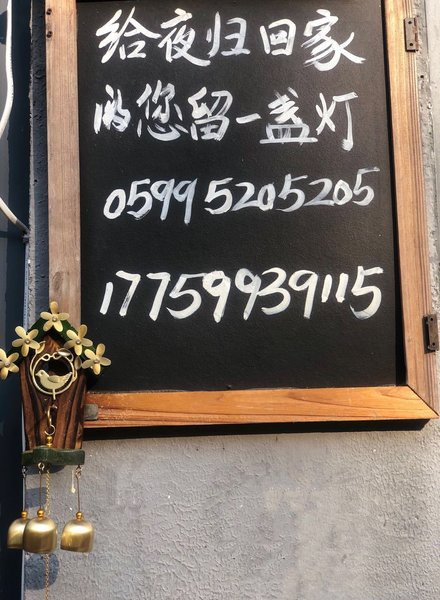 给夜归回家
的您留一盏灯
05995205205
17759939115